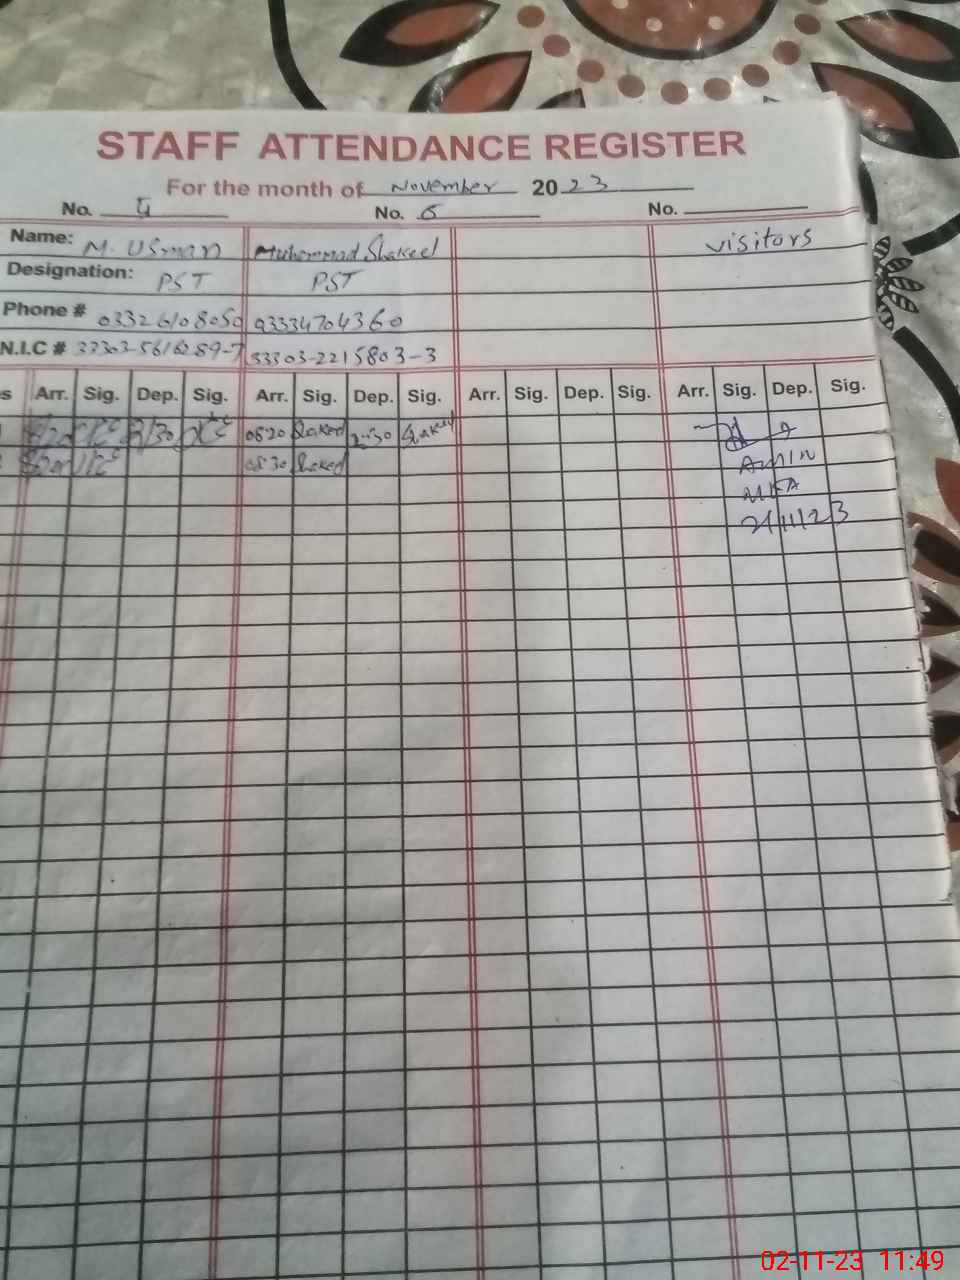 STAFF ATTENDANCE REGISTER
For the month of November 2023
No. 4 No. 5 No.
Name: M. Usman Muhammad Shakeel visitors
Designation: PST PST
Phone # 03326108050 03334704360
N.I.C # 37303-5616289-7 33303-2215803-3
Arr. Sig. Dep. Sig. Arr. Sig. Dep. Sig. Arr. Sig. Dep. Sig. Arr. Sig. Dep. Sig.
0820 Shakeel 2:30 Shakeel
0830 Shakeel AMIN
MEA
2/11/23
02-11-23 11:49